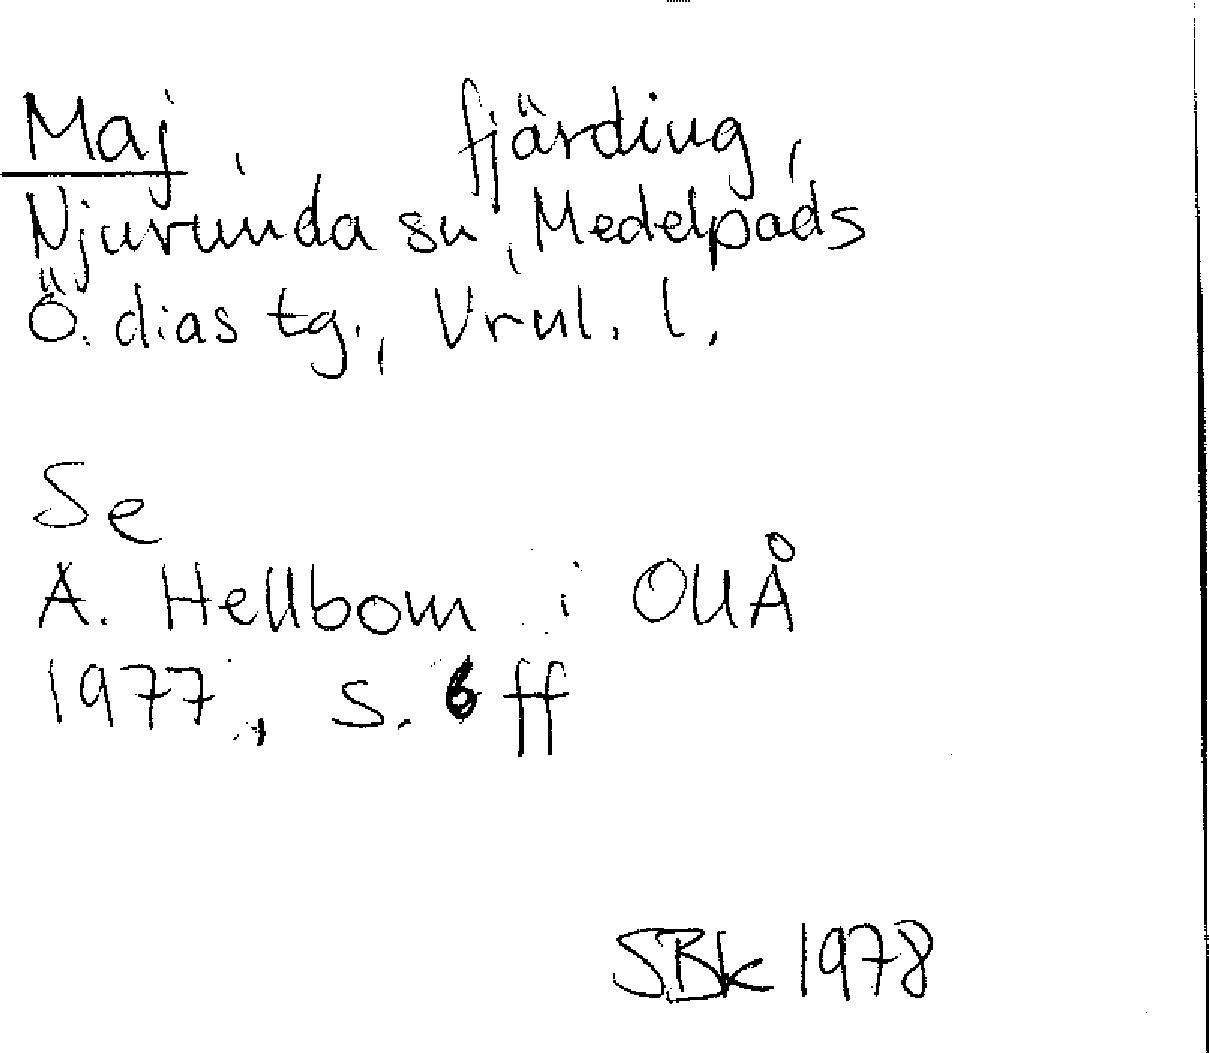 Maj, fjärding,
Njurunda sn, Medelpads
Ö. dias tg., Vrnl. l.
Se
A. Hellbom i OUÅ
1977, s. 6 ff
SBk 1978